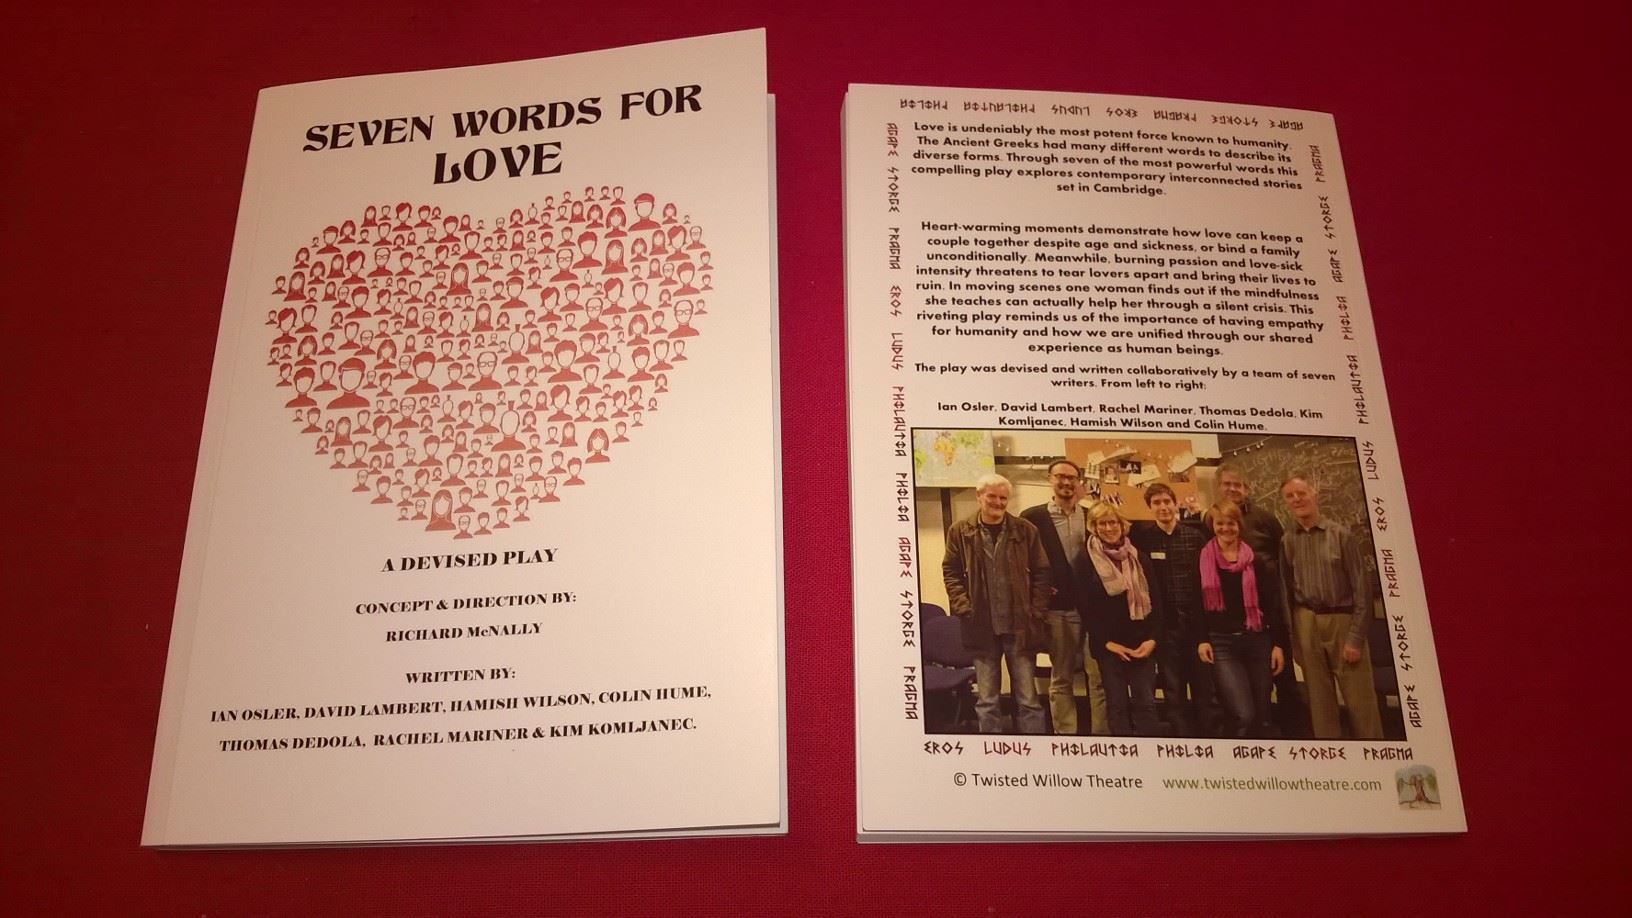 SEVEN WORDS FOR
LOVE
A DEVISED PLAY
CONCEPT & DIRECTION BY:
RICHARD McNALLY
WRITTEN BY:
IAN OSLER, DAVID LAMBERT, HAMISH WILSON, COLIN HUME,
THOMAS DEDOLA, RACHEL MARINER & KIM KOMLJANEC.
AGAPE STORGE PRAGMA EROS LUDUS PHILAUTIA PHILIA
AGAPE STORGE PRAGMA EROS LUDUS PHILAUTIA PHILIA AGAPE STORGE PRAGMA
Love is undeniably the most potent force known to humanity.
The Ancient Greeks had many different words to describe its
diverse forms. Through seven of the most powerful words this
compelling play explores contemporary interconnected stories
set in Cambridge.
Heart-warming moments demonstrate how love can keep a
couple together despite age and sickness, or bind a family
unconditionally. Meanwhile, burning passion and love-sick
intensity threatens to tear lovers apart and bring their lives to
ruin. In moving scenes one woman finds out if the mindfulness
she teaches can actually help her through a silent crisis. This
riveting play reminds us of the importance of having empathy
for humanity and how we are unified through our shared
experience as human beings.
The play was devised and written collaboratively by a team of seven
writers. From left to right:
Ian Osler, David Lambert, Rachel Mariner, Thomas Dedola, Kim
Komljanec, Hamish Wilson and Colin Hume.
AGAPE STORGE PRAGMA EROS LUDUS PHILAUTIA PHILIA AGAPE STORGE PRAGMA
EROS LUDUS PHILAUTIA PHILIA AGAPE STORGE PRAGMA
© Twisted Willow Theatre www.twistedwillowtheatre.com